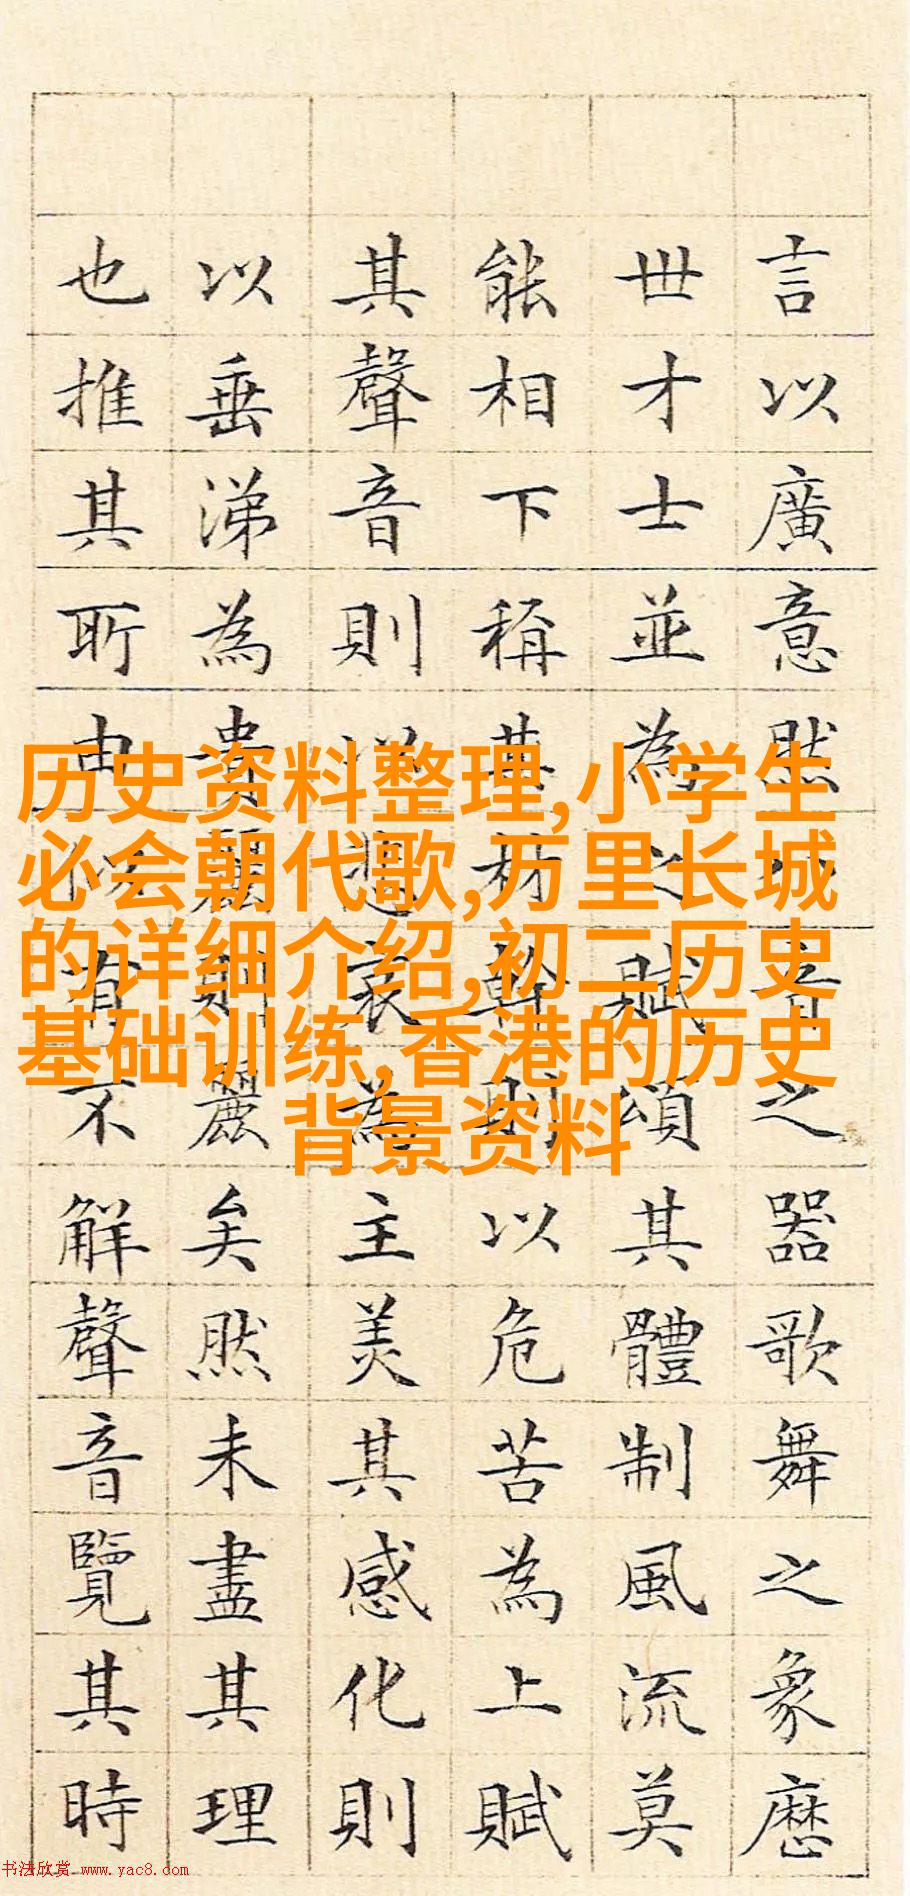 言以廣意然八音之器歌舞之象歷
世才士並為之賦頌其體制風流莫
能相下稱其材幹則以危苦為上賦
其聲音則以悲哀為主美其感化則
以垂涕為貴麗則麗矣然未盡其理
也推其所由似有不解聲音覽其時
历史资料整理,小学生
必会朝代歌,万里长城
的详细介绍,初二历史
基础训练,香港的历史
背景资料
书法欣赏 www.yac8.com